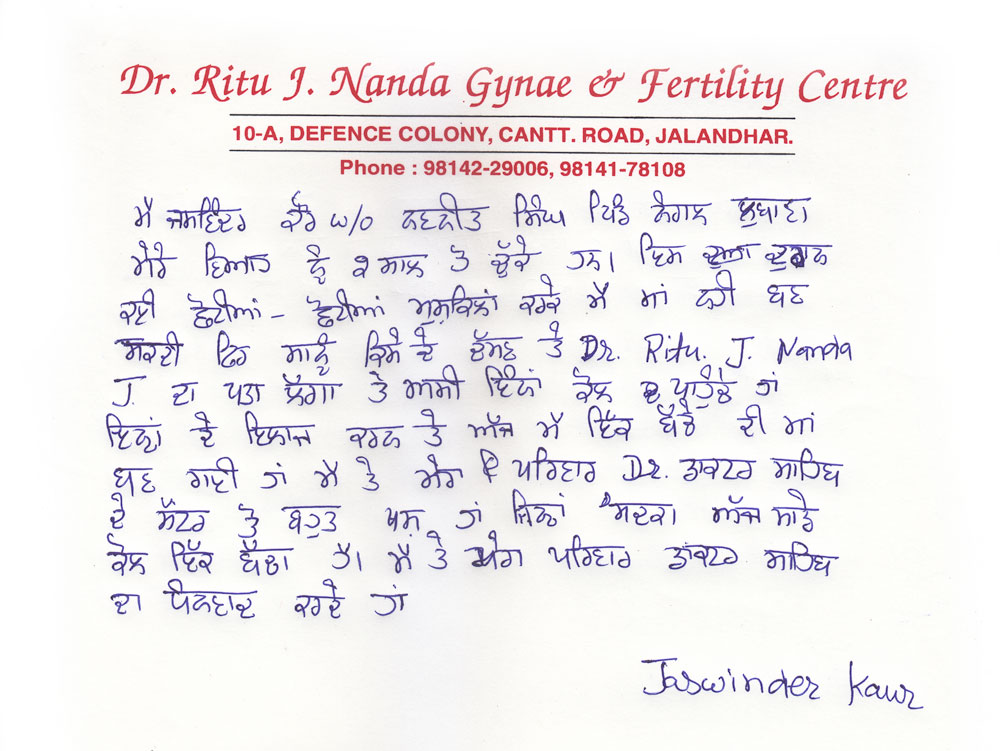 Dr. Ritu J. Nanda Gynae & Fertility Centre
10-A, DEFENCE COLONY, CANTT. ROAD, JALANDHAR.
Phone : 98142-29006, 98141-78108
ਮੈ ਜਸਵਿੰਦਰ ਕੌਰ w/o ਨਵਨੀਤ ਸਿੰਘ ਪਿੰਡ ਨੰਗਲ
ਮੇਰੇ ਵਿਆਹ ਨੂੰ 2 ਸਾਲ ਹੋ ਚੁੱਕੇ ਹਨ। ਇਸ
ਕਈ ਛੋਟੀਆਂ - ਛੋਟੀਆਂ ਮੁਸ਼ਕਿਲਾਂ ਕਰਕੇ ਮੈ ਮਾਂ ਨਹੀ ਬਣ
ਸਕਦੀ ਫਿਰ ਸਾਨੂੰ ਕਿਸੇ ਦੇ ਦੱਸਣ ਤੇ Dr. Ritu. J. Nanda
J. ਦਾ ਪਤਾ ਲੱਗਾ ਤੇ ਅਸੀ ਇੰਨਾਂ ਕੋਲ ਪਾਹੁੰਚੇ ਹਾਂ
ਇਨ੍ਹਾਂ ਦੇ ਇਲਾਜ ਕਰਨ ਤੇ ਅੱਜ ਮੈਂ ਇੱਕ ਬੱਚੇ ਦੀ ਮਾਂ
ਬਣ ਗਈ ਹਾਂ ਮੈ ਤੇ ਮੇਰਾ ਪਰਿਵਾਰ Dr. ਡਾਕਟਰ ਸਾਹਿਬ
ਦੇ ਸੈਂਟਰ ਤੋ ਬਹੁਤ ਖੁਸ਼ ਹਾਂ ਜਿਨ੍ਹਾਂ ਸਦਕਾ ਅੱਜ ਸਾਡੇ
ਕੋਲ ਇੱਕ ਬੱਚਾ ਹੈ। ਮੈ ਤੇ ਮੇਰਾ ਪਰਿਵਾਰ ਡਾਕਟਰ ਸਾਹਿਬ
ਦਾ ਧੰਨਵਾਦ ਕਰਦੇ ਹਾਂ
Jaswinder Kaur